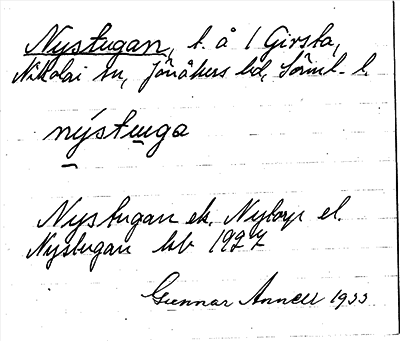 Nystugan, t. å 1 Girsta,
Nikolai sn, Jönåkers hd, Sörml. l.
nýstuuga
Nystugan ek. Nytorp el.
Nystugan hb 1927
Gunnar Annell 1933